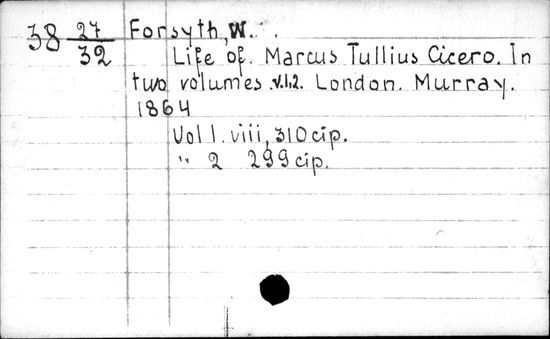 38 27/32 Forsyth, W.
Life of Marcus Tullius Cicero. In
two volumes v.1,2. London. Murray.
1864
Vol 1. viii, 310 cip.
" 2 299 cip.